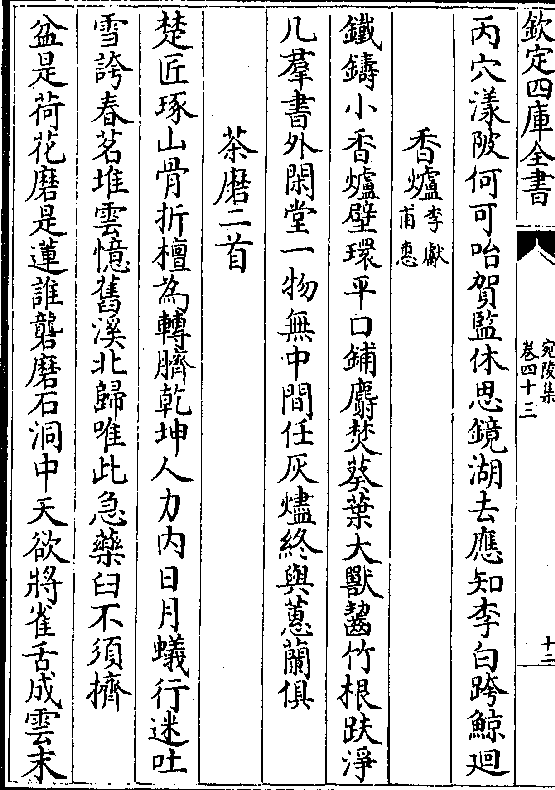 欽定四庫全書
宛陵集
卷四十三
十三
丙穴漾陂何可咍賀監休思鏡湖去應知李白跨鯨廻
香爐李獻甫惠
鐵鑄小香爐壁環平口鋪麝焚葵葉大獸齧竹根趺淨
几羣書外閑堂一物無中間任灰燼終與蕙蘭俱
茶磨二首
楚匠琢山骨折檀為轉臍乾坤人力內日月蟻行迷吐
雪誇春茗堆雲憶舊溪北歸唯此急藥臼不須擠
盆是荷花磨是蓮誰礲磨石洞中天欲將雀舌成雲末